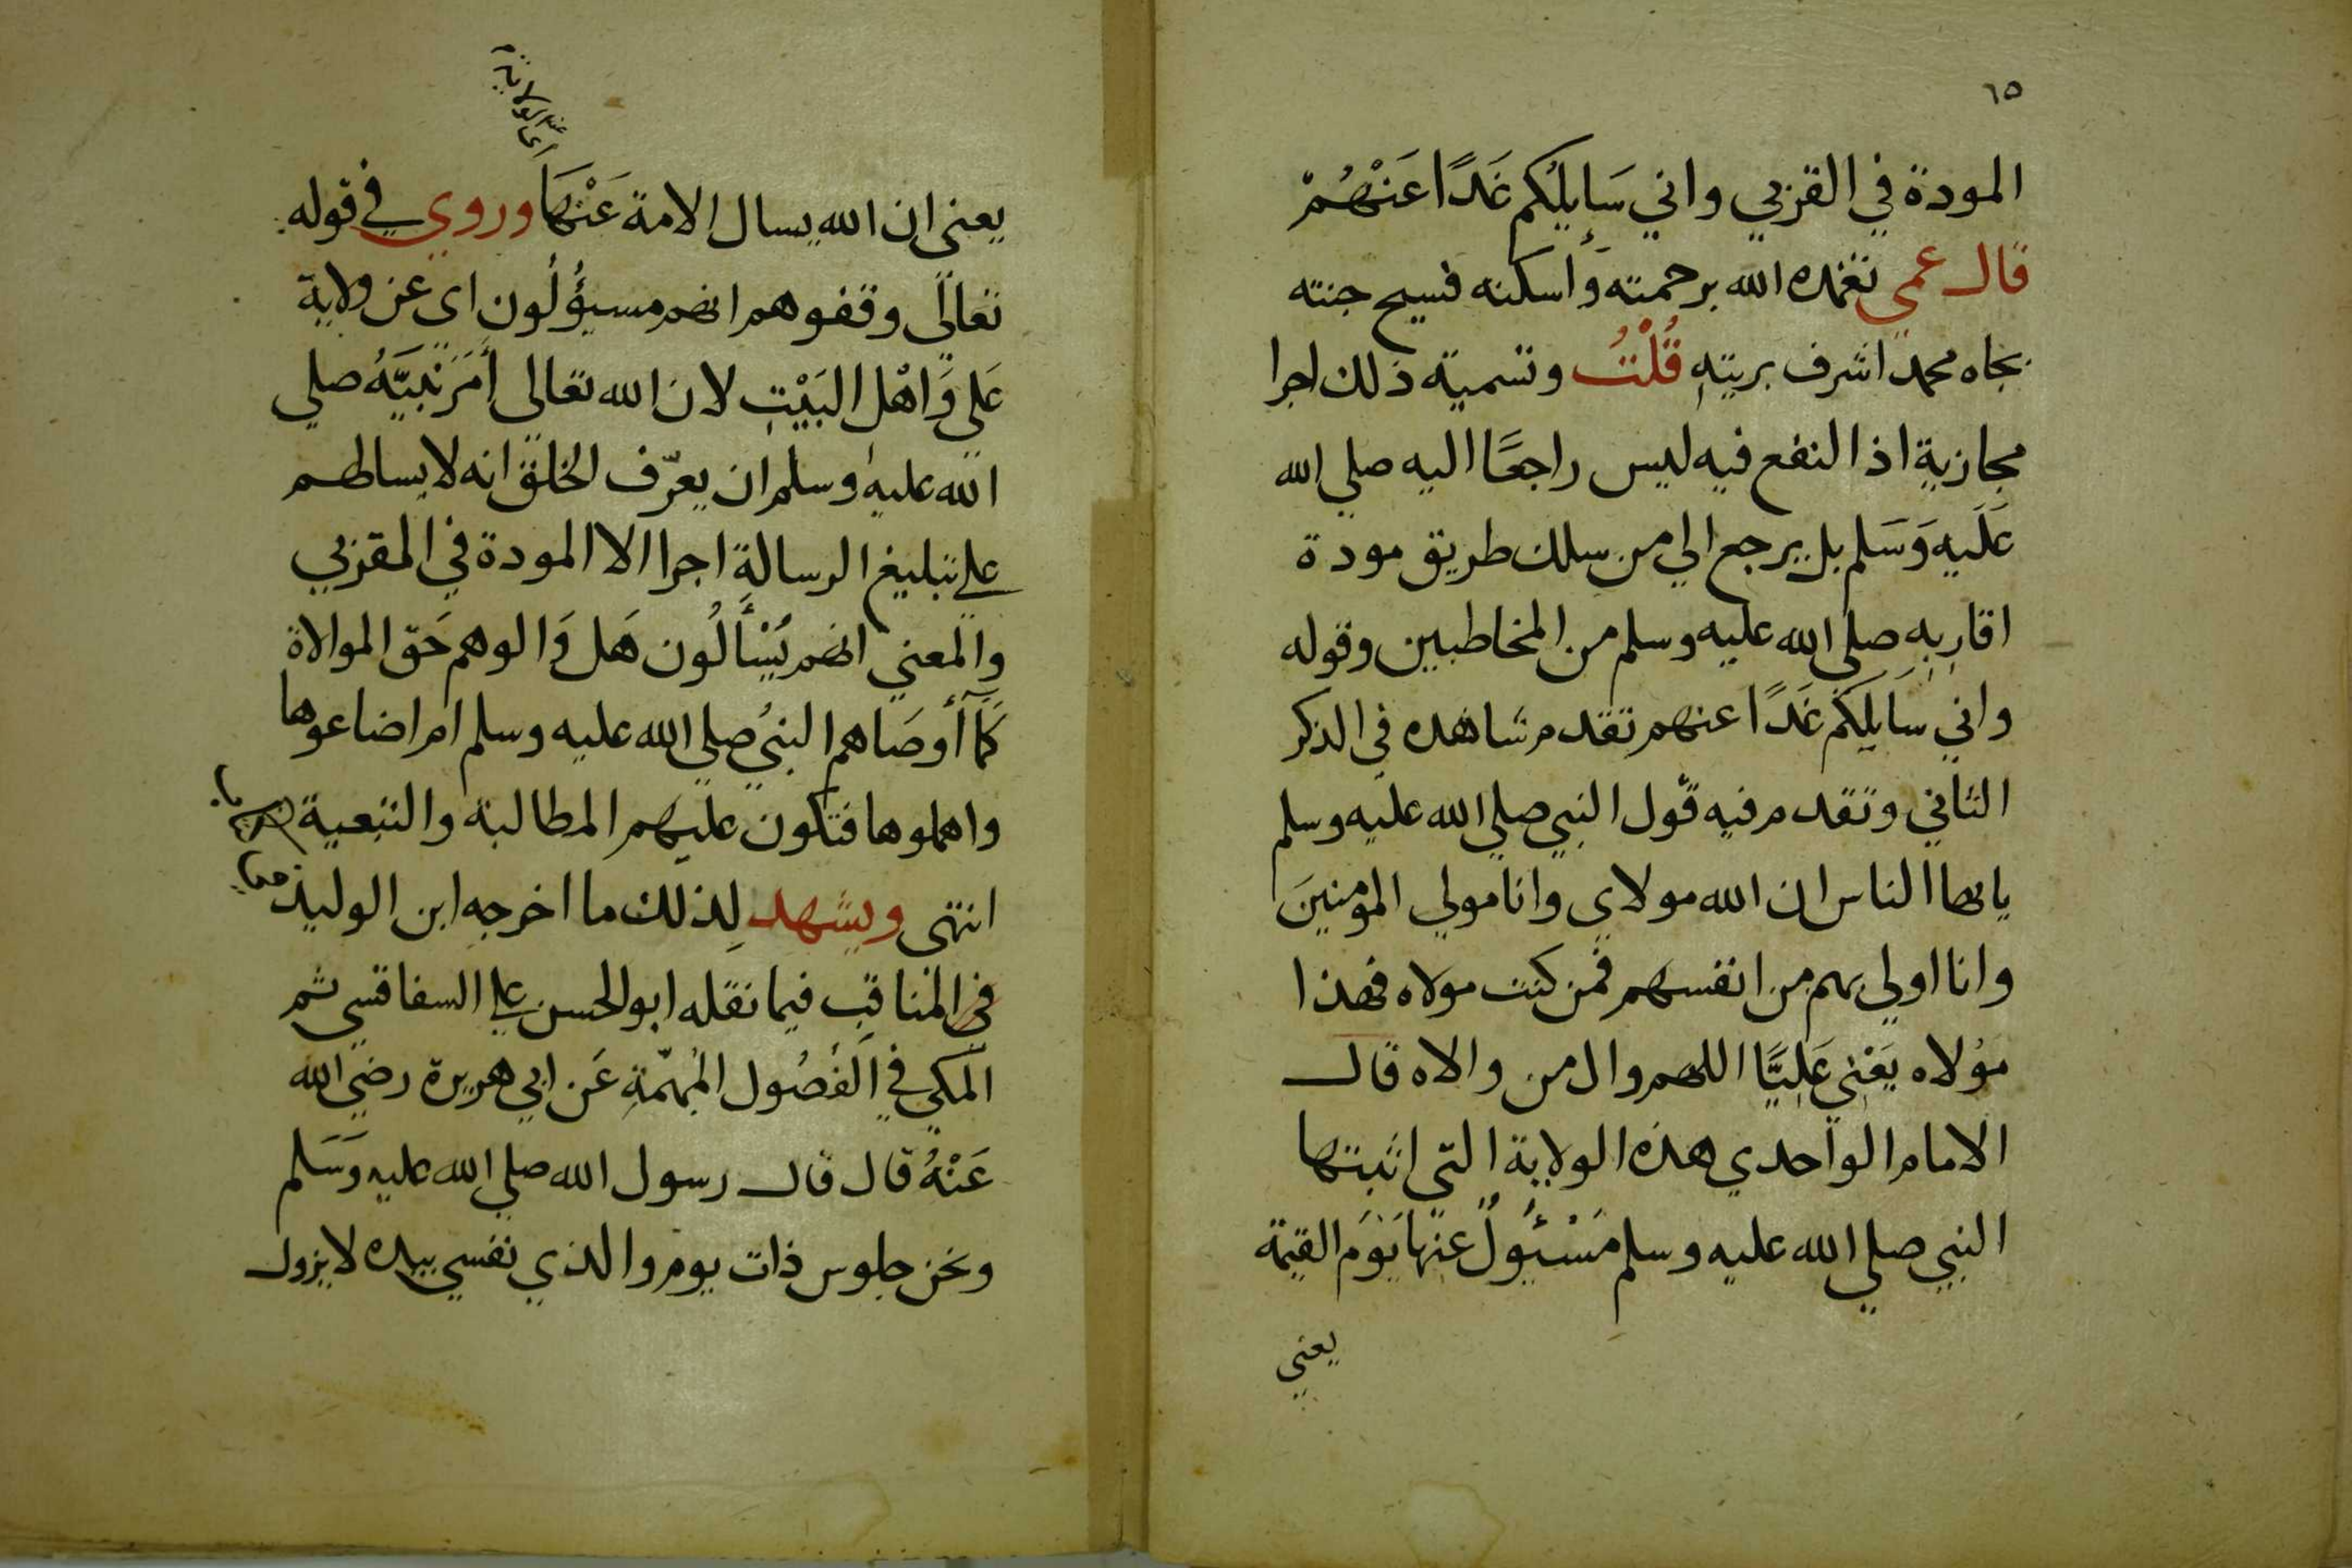 ٦٥
المودة في القربي واني سَايلُكم غَدًا عَنْهُمْ
قال عمي تغمده الله برحمته وأسكنه فسيح جنته
بجاه محمد اشرف بريتهِ قُلْتُ وتسمية ذلك اجرا
مجازية اذ النفع فيه ليس راجعًا اليه صلي الله
عَلَيه وَسَلم بل يرجع الي من سلك طريق مودة
اقاربِهِ صلي الله عليه وسلم من المخاطبين وقوله
واني سَايلكم غَدًا عنهم تقدم شاهده في الذكر
الثاني وتقدم فيه قول النبي صلي الله عليه وسلم
يا ايها الناس ان الله مولاي وانا مولي المؤمنينَ
وانا اولي بهم من انفسهم فمن كنت مولاه فهذا
مولاه يَعْني عَليًّا اللهم وال من والاه قال
الامام الواحدي هذه الولاية التي اثبتها
النبي صلي الله عليه وسلم مَسْئُولٌ عنها يَوْمَ القيمة
يعني
اي الولاية
يعنى ان الله يسال الامة عَنْهَا وروي في قوله
تعالى وقفوهم انهم مسيؤُلُون اي عن ولاية
عَلي وَاهْل البَيْتِ لان الله تعالى أمَرَ نَبيَّهُ صلي
الله عليه وسلم ان يعرّف الخلق انه لا يسالهم
علي تبليغ الرسالة اجرا الا المودة في القربي
والمعني انهم يُسْأَلُون هَل وَالوهم حَقّ الموالاة
كَمَا أوصَاهم النبيُ صلي الله عليه وسلم ام اضاعوها
واهملوها فتكون عليهم المطالبة والتبعية
انتهى ويشهد لِذلك ما اخرجه ابن الوليد
في المناقب فيما نقله ابو الحسن علي السفاقسي ثم
المكي في الفُصُول المُهمّةِ عَن ابي هريرة رضي الله
عَنْهُ قال قال رسول الله صلي الله عليه وَسَلم
ونحن جلوس ذات يوم والذي نفسي بيده لا يزول